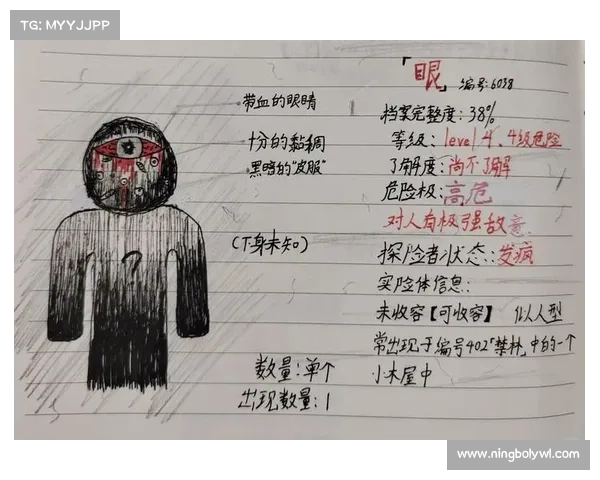 TG: MYYJJPP
「眼」 编号:6038
·带血的眼睛
十分的黏稠
黑暗的"皮肤"
(下身未知)
数量:单个
出现数量:1
档案完整度:38%
等级:level 4、4级危险
了解度:尚不了解
危险极:高危
对人有极强敌意
探险者状态:发疯
实险体信息:
未收容【可收容】 似人型
常出现于编号402「禁林」中的一个
小木屋中
?
www.ningbolywl.com